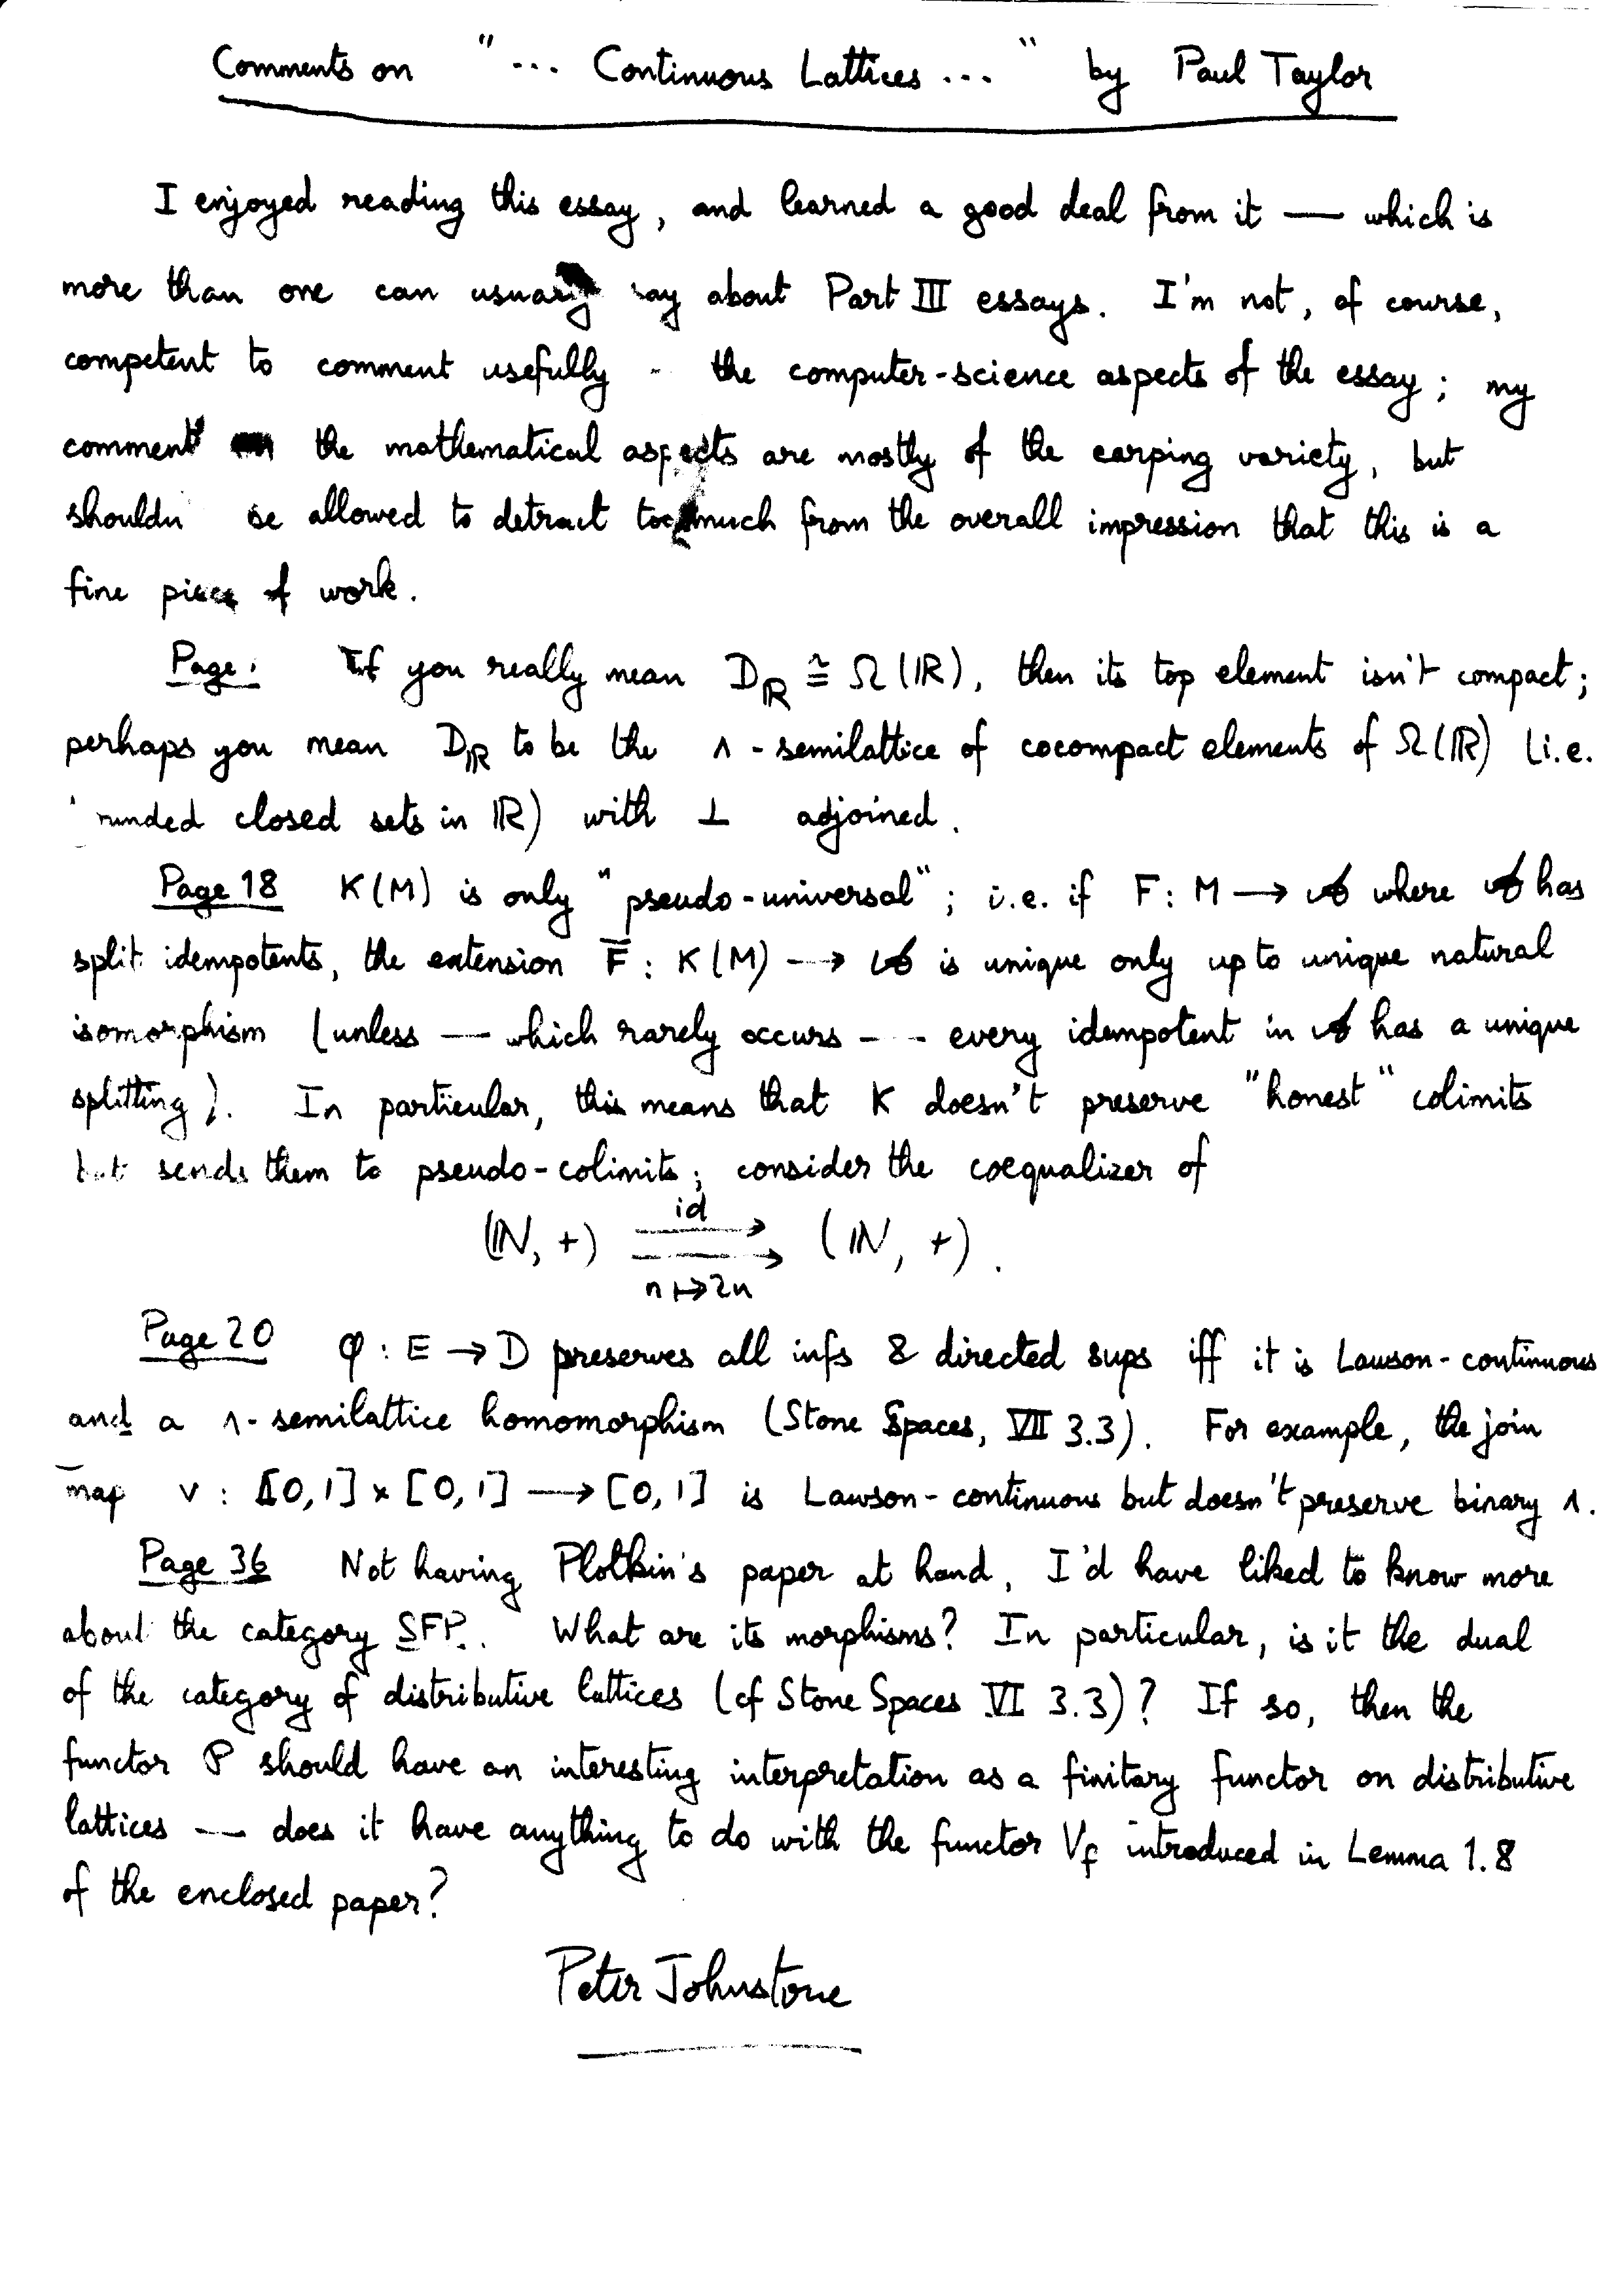 Comments on "... Continuous Lattices ..." by Paul Taylor
I enjoyed reading this essay, and learned a good deal from it — which is
more than one can usually say about Part III essays. I'm not, of course,
competent to comment usefully the computer-science aspects of the essay; my
comment the mathematical aspects are mostly of the carping variety, but
be allowed to detract too much from the overall impression that this is a
fine piece of work.
Page If you really mean D_ℝ ≅ Ω(ℝ), then its top element isn't compact;
perhaps you mean D_ℝ to be the ∧-semilattice of cocompact elements of Ω(ℝ) (i.e.
closed sets in ℝ) with ⊥ adjoined.
Page 18 K(M) is only "pseudo-universal"; i.e. if F: M → 𝒜 where 𝒜 has
split idempotents, the extension F̅: K(M) → 𝒜 is unique only up to unique natural
isomorphism (unless — which rarely occurs — every idempotent in 𝒜 has a unique
splitting). In particular, this means that K doesn't preserve "honest" colimits
but sends them to pseudo-colimits; consider the coequalizer of
id
(ℕ, +) ⇉ (ℕ, +).
n↦2n
Page 20 φ: E → D preserves all infs & directed sups iff it is Lawson-continuous
and a ∧-semilattice homomorphism (Stone Spaces, VII 3.3). For example, the join
map ∨: [0,1] × [0,1] → [0,1] is Lawson-continuous but doesn't preserve binary ∧.
Page 36 Not having Plotkin's paper at hand, I'd have liked to know more
about the category SFP. What are its morphisms? In particular, is it the dual
of the category of distributive lattices (cf Stone Spaces VI 3.3)? If so, then the
functor P should have an interesting interpretation as a finitary functor on distributive
lattices — does it have anything to do with the functor V_f introduced in Lemma 1.8
of the enclosed paper?
Peter Johnstone